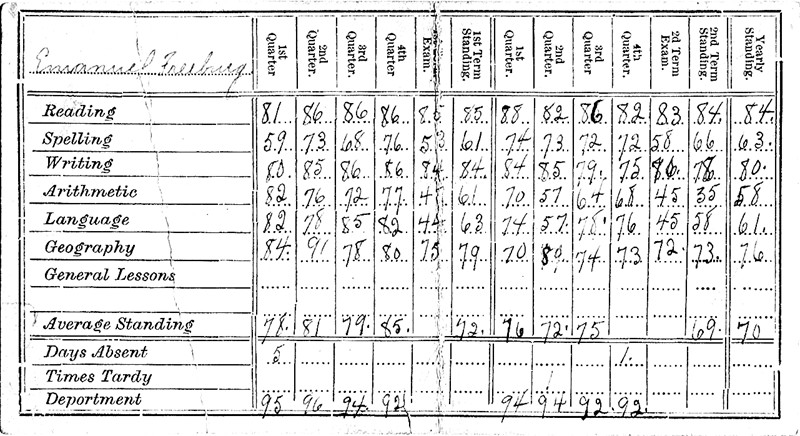 Emanuel Freeburg 1st Quarter. 2nd Quarter. 3rd Quarter. 4th Quarter Exam. 1st Term Standing. 1st Quarter. 2nd Quarter. 3rd Quarter 4th Quarter. 2d Term Exam. 2nd Term Standing. Yearly Standing.
Reading 81 86 86 86 85 85 88 82 86 82 83 84 84
Spelling 59 73 68 76 53 61 74 73 72 72 58 66 63
Writing 80 85 86 86 84 84 84 85 79 75 86 78 80
Arithmetic 82 76 72 77 45 61 70 57 64 68 45 35 58
Language 82 78 85 82 44 63 74 57 78 76 45 58 61
Geography 84 91 78 80 75 79 70 80 74 73 72 73 76
General Lessons
Average Standing 78 81 79 85 72 76 72 75 69 70
Days Absent 5 1
Times Tardy
Deportment 95 96 94 92 94 94 92 92